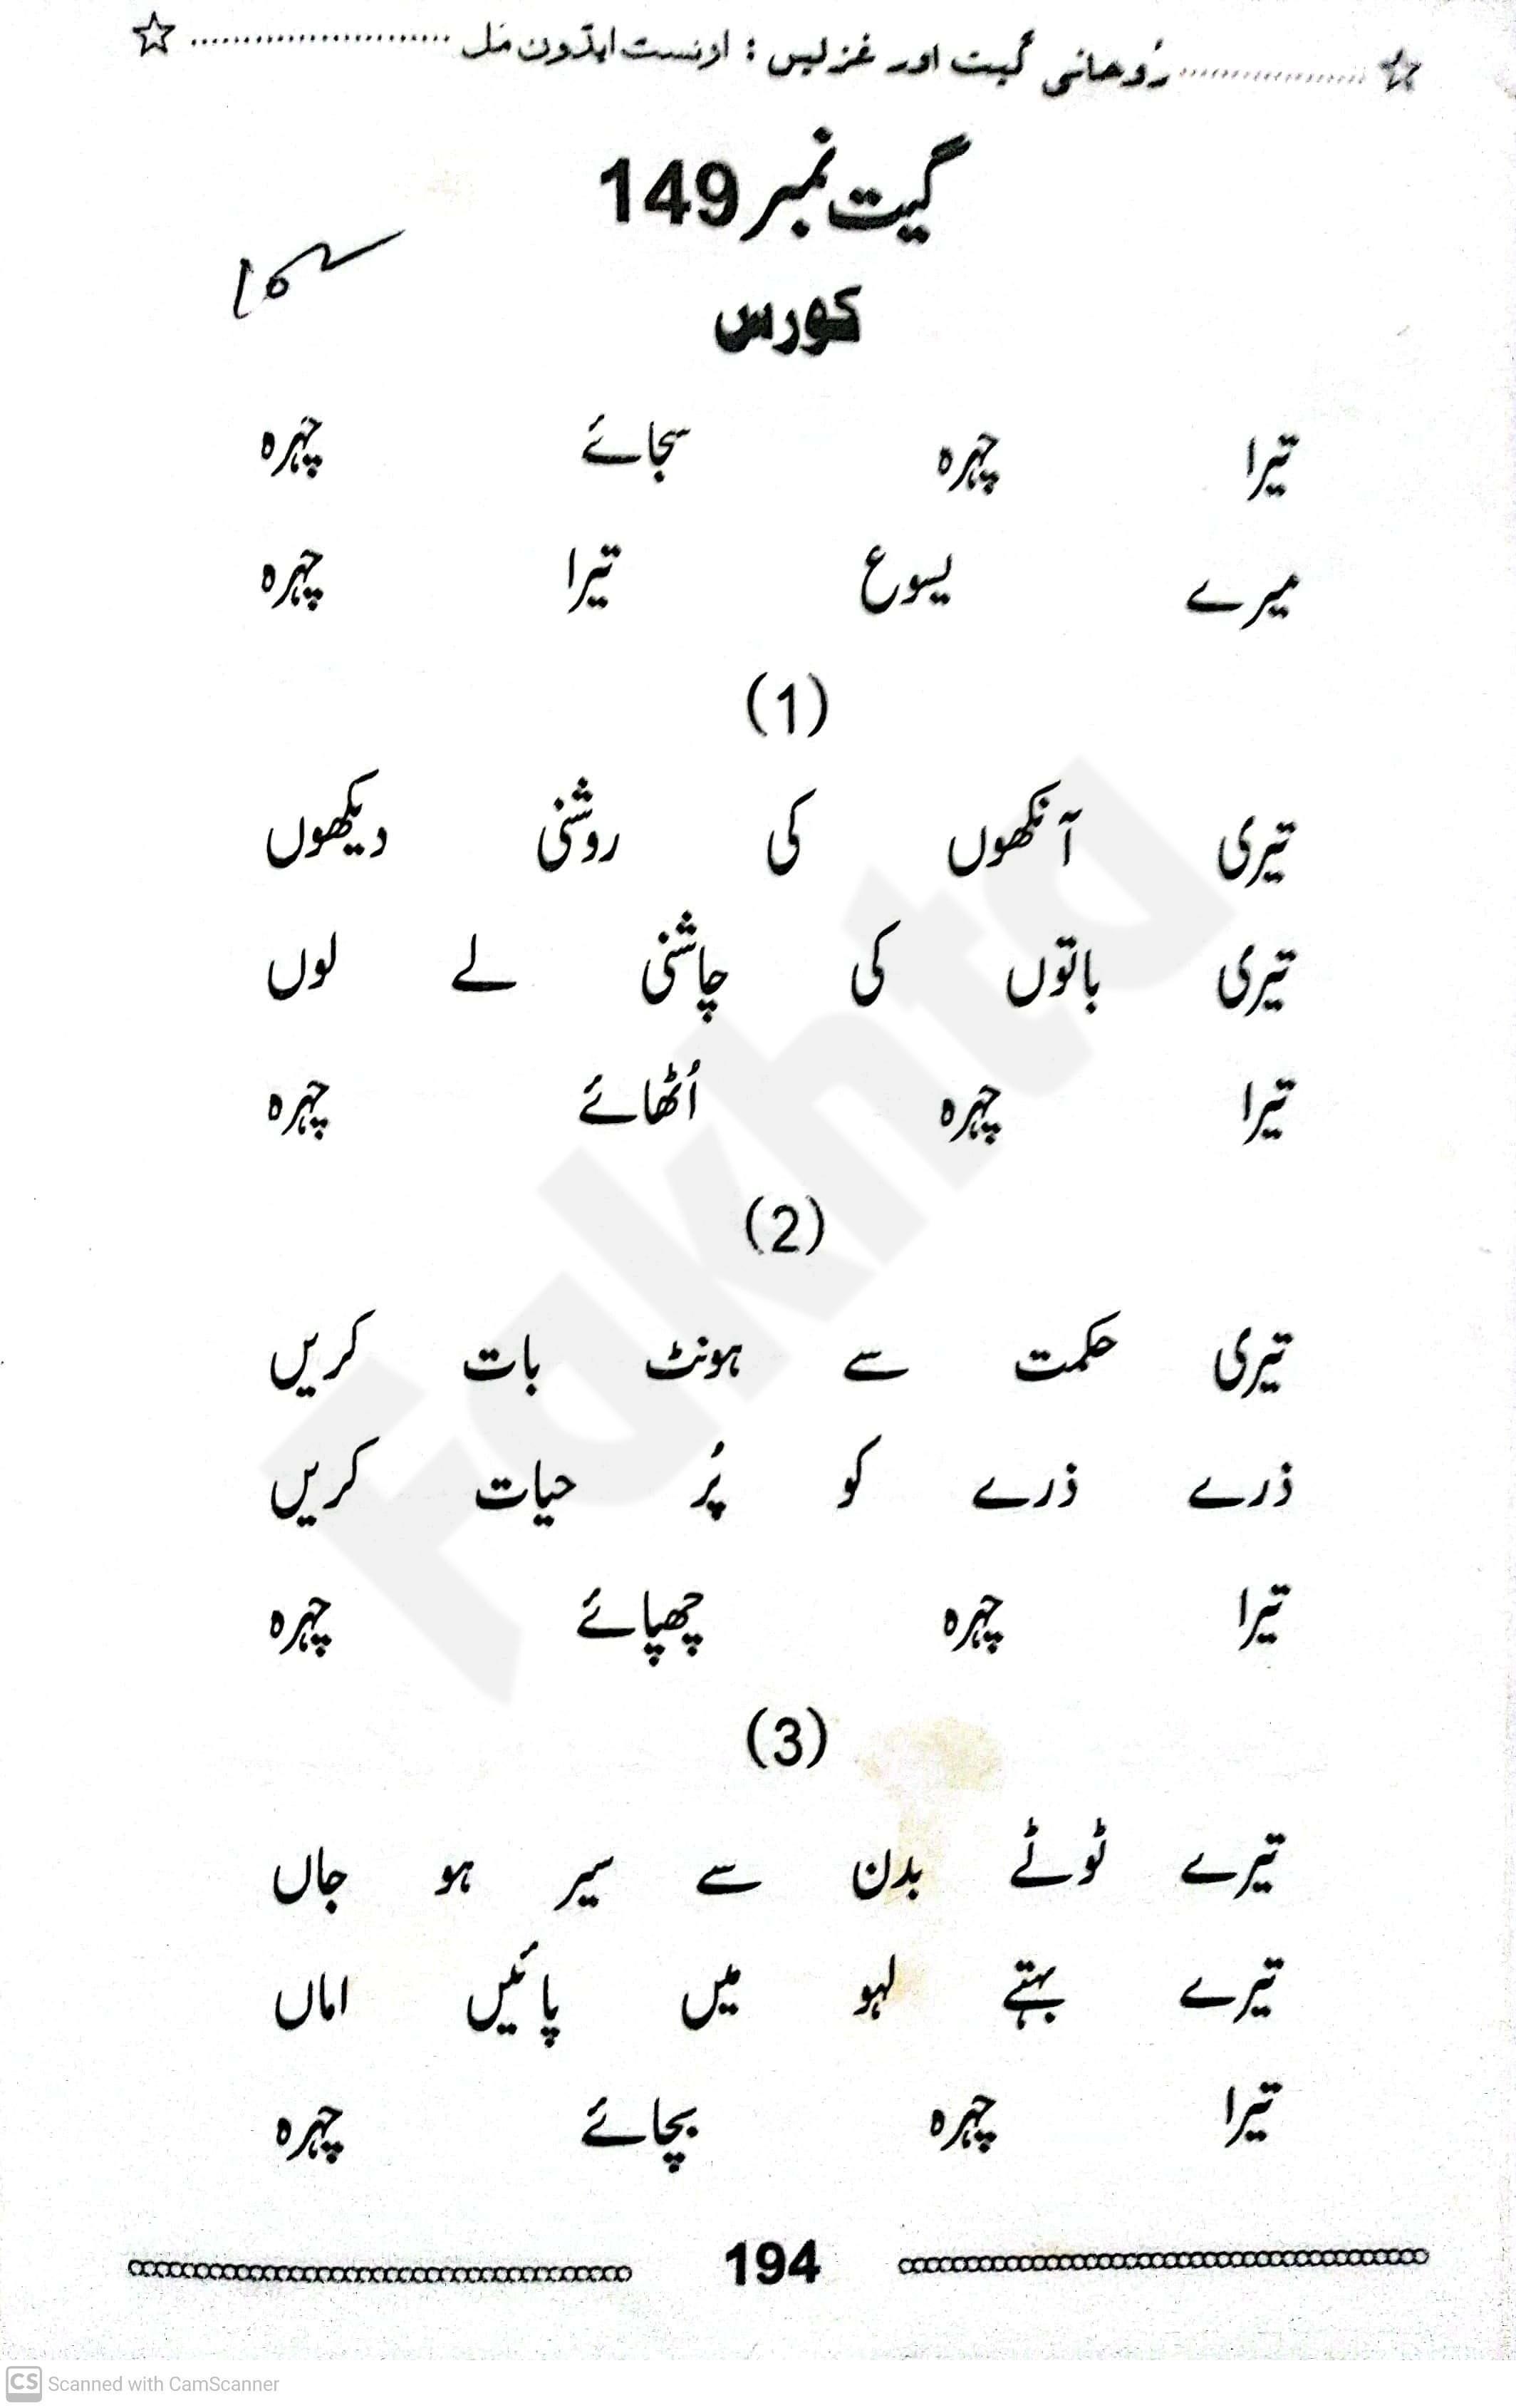 رُوحانی گیت اور غزلیں : اونسٹ ایڈون مَل
گیت نمبر 149
کورس
تیرا چہرہ سجائے چہرہ
میرے یسوع تیرا چہرہ
(1)
تیری آنکھوں کی روشنی دیکھوں
تیری باتوں کی چاشنی لے لوں
تیرا چہرہ اُٹھائے چہرہ
(2)
تیری حکمت سے ہونٹ بات کریں
ذرے ذرے کو پُر حیات کریں
تیرا چہرہ چھپائے چہرہ
(3)
تیرے ٹوٹے بدن سے سیر ہو جاں
تیرے بہتے لہو میں پائیں اماں
تیرا چہرہ بچائے چہرہ
194
Fakhta
CS Scanned with CamScanner